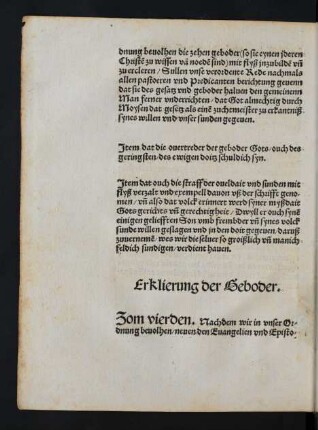 dnung bevolhen die zehen geboder/so sie eynen jderen
Christē zu wissen vn̄ noedē sind/mit flyß jnzubildē vn̄
zu ercleren/Sullen vnse verordente Rede nachmals
allen pastoeren vnd Predicanten berichung geuenn
dat sie des gesatz vnd geboder haluen den gemeinenn
Man ferner vnderrichten/dat Got almechtig durch
Moysen dat gesetz als eine zuchemeister zu erkantniß
synes willen vnd vnser sunden gegeuen.
Item dat die ouertreder der geboder Gots/ouch des
geringsten/des ewigen doitz schuldich syn.
Item dat ouch die straff der oueldait vnd sunden mit
flyß verzalt vnd exempell dauon vß der schrifft geno-
men/vn̄ also dat volck erinnert werd syner myßdait
Gots gerichts vn̄ gerechrigheit/Dwyll er ouch synē
einigen geliefften Son vmb frembder vn̄ synes volck
sunde willen geslagen vnd jn den doit gegeuen/daruß
zuuernemē/wes wir die seluer so groißlich vn̄ manich
feldich sundigen/verdient hauen.
Erklierung der Geboder.
Zom vierden. Nachdem wir in vnser Or-
dnung bevolhen/neuen den Euangelien vnd Episto-